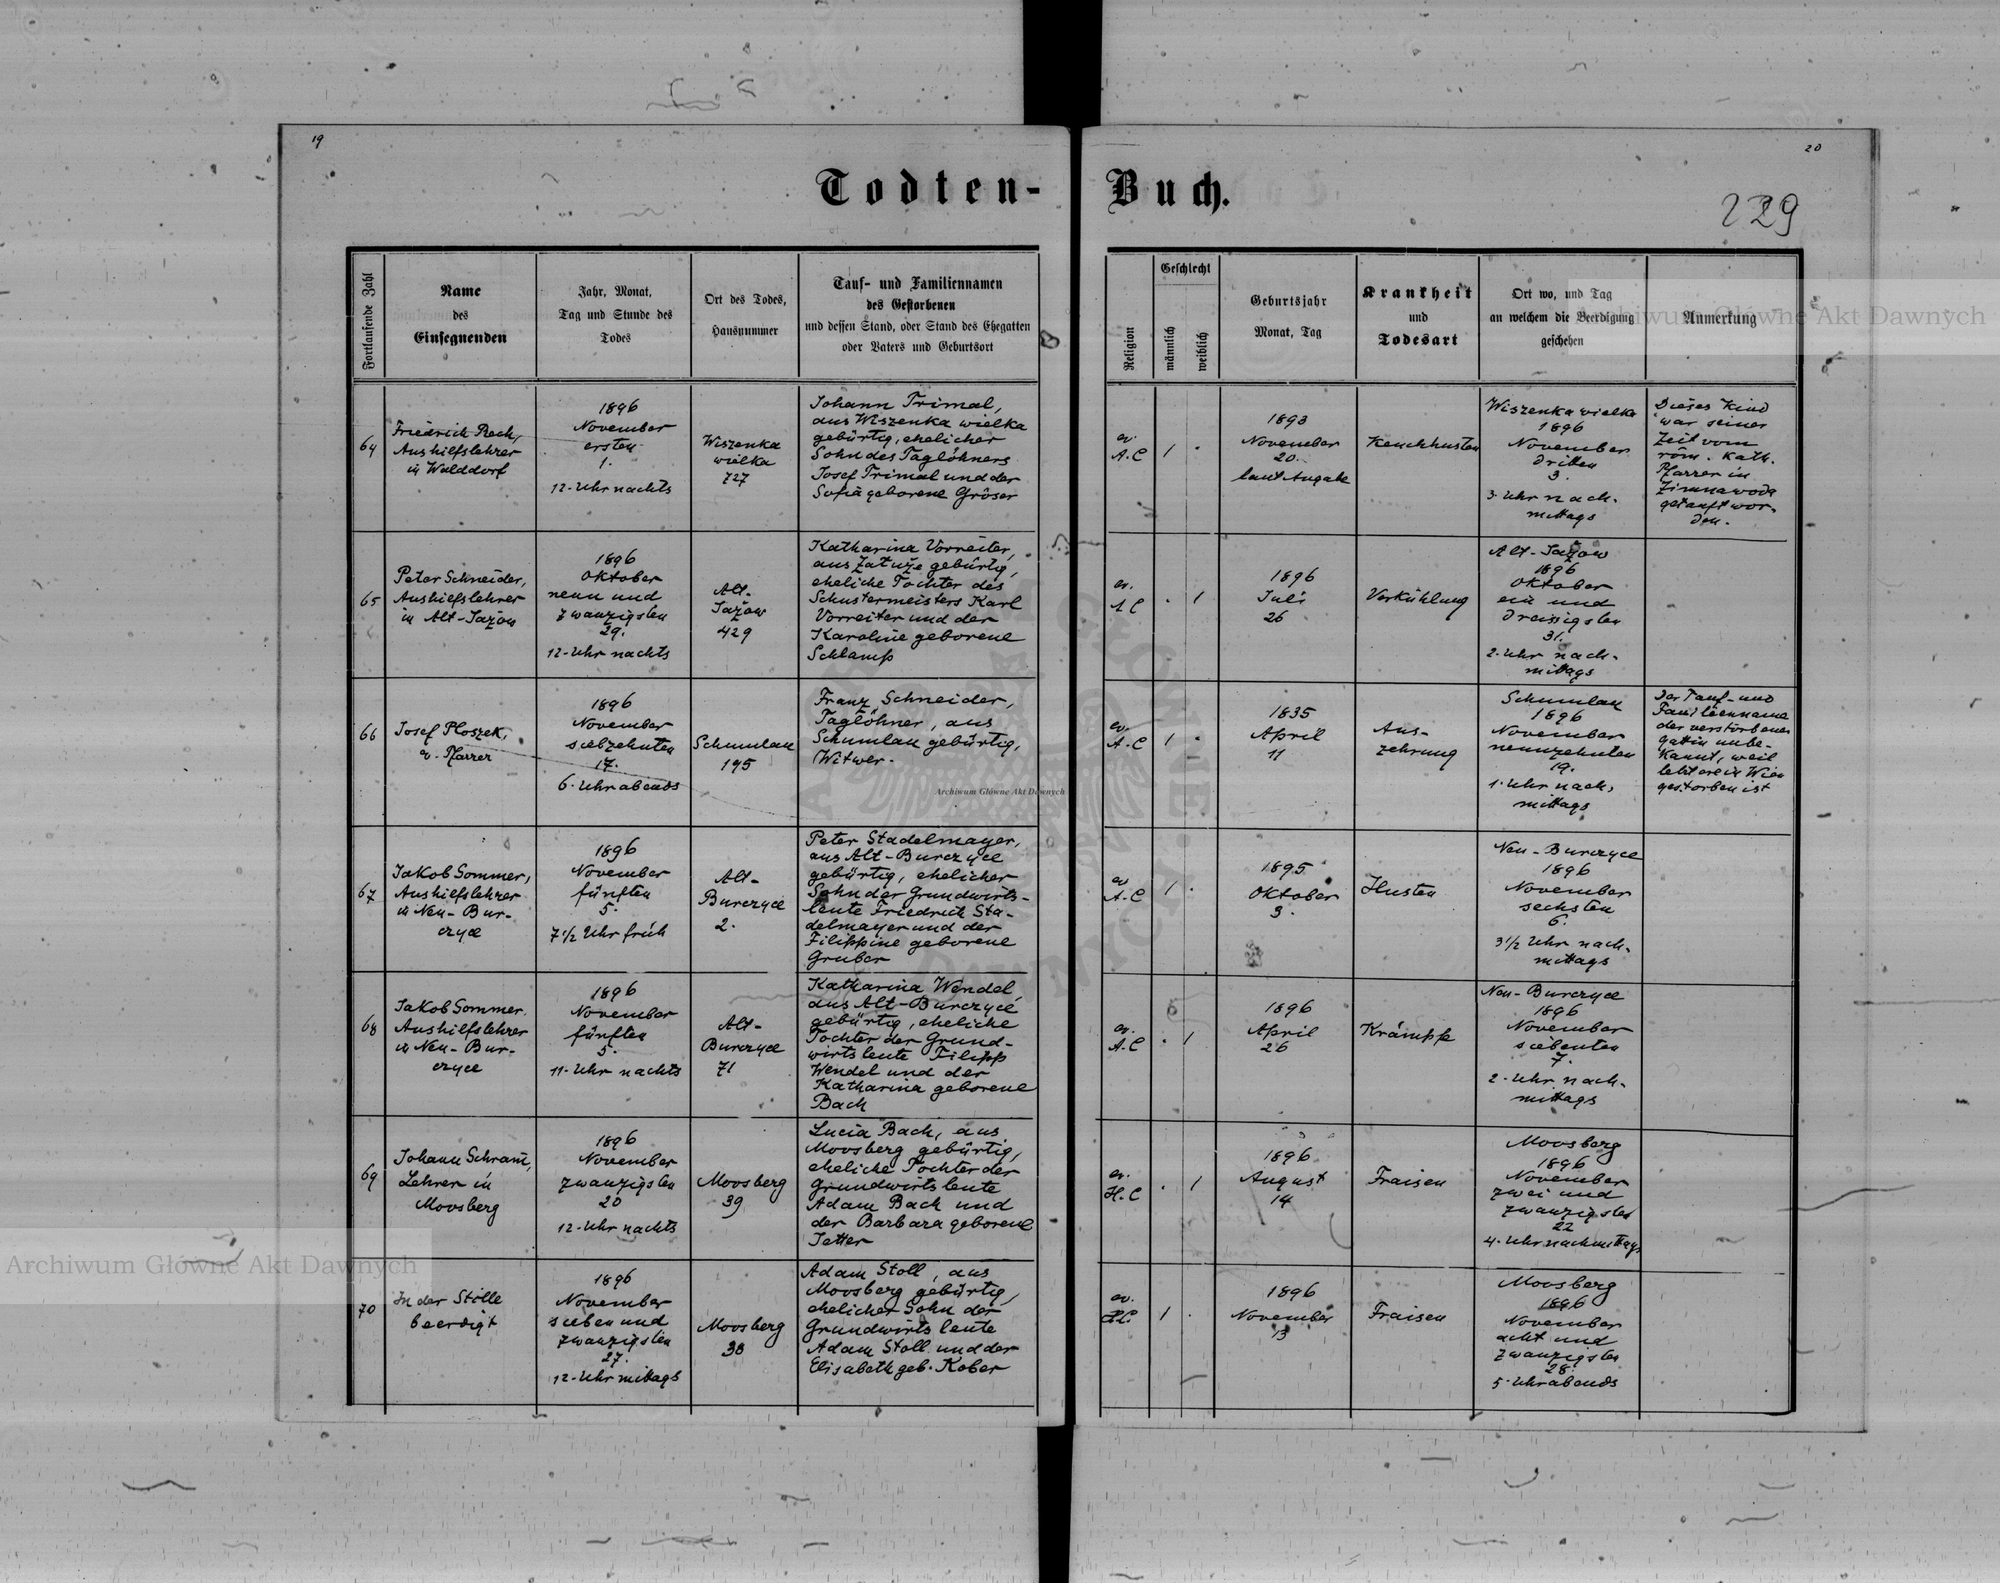 19
20
Todten-Buch.
229
Fortlaufende Zahl
Name
des
Einsegnenden
Jahr, Monat,
Tag und Stunde des
Todes
Ort des Todes,
Hausnummer
Tauf- und Familiennamen
des Gestorbenen
und dessen Stand, oder Stand des Ehegatten
oder Vaters und Geburtsort
Religion
Geschlecht
männlich
weiblich
Geburtsjahr
Monat, Tag
Krankheit
und
Todesart
Ort wo, und Tag
an welchem die Beerdigung
geschehen
Anmerkung
64
Friedrich Rech,
Aushilfslehrer
in Walddorf
1896
November
ersten
1.
12-Uhr nachts
Wiszenka
wielka
727
Johann Trimal,
aus Wiszenka wielka
gebürtig, ehelicher
Sohn des Taglöhners
Josef Trimal und der
Sofia geborene Gröser
ev.
A.C
1
1893
November
20.
laut Angabe
Keuchhusten
Wiszenka wielka
1896
November
dritten
3.
3-Uhr nach-
mittags
Dieses Kind
war seiner
Zeit vom
röm. kath.
Pfarrer in
getauft wor-
den.
65
Peter Schneider,
Aushilfslehrer
in Alt-Jażow
1896
Oktober
neun und
zwanzigsten
29.
12-Uhr nachts
Alt-
Jażow
429
Katharina Vorreiter,
aus Zatuże gebürtig,
eheliche Tochter des
Schustermeisters Karl
Vorreiter und der
Karoline geborene
Schlamp
ev.
A.C
1
1896
Juli
26
Verkühlung
Alt-Jażow
1896
Oktober
ein und
dreissigsten
31.
2-Uhr nach-
mittags
66
Josef Ploszek,
ev. Pfarrer
1896
November
siebzehnten
17.
6-Uhr abends
Schumlau
195
Franz Schneider,
Taglöhner, aus
Schumlau gebürtig,
Witwer.
ev.
A.C
1
1835
April
11
Aus-
zehrung
Schumlau
1896
November
neunzehnten
19.
1-Uhr nach-
mittags
Der Tauf- und
Familienname
der verstorbenen
Gattin unbe-
kannt, weil
letztere in Wien
gestorben ist
67
Jakob Sommer,
Aushilfslehrer
in Neu-Bur-
czyce
1896
November
fünften
5.
7 1/2 Uhr früh
Alt-
Burczyce
2.
Peter Stadelmayer,
aus Alt-Burczyce
gebürtig, ehelicher
Sohn der Grundwirts-
leute Friedrich Sta-
delmayer und der
Filippine geborene
Gruber
ev
A.C
1
1895
Oktober
3.
Husten
Neu-Burczyce
1896
November
sechsten
6.
3 1/2 Uhr nach-
mittags
68
Jakob Sommer
Aushilfslehrer
in Neu-Bur-
czyce
1896
November
fünften
5.
11-Uhr nachts
Alt-
Burczyce
71
Katharina Wendel
aus Alt-Burczyce
gebürtig, eheliche
Tochter der Grund-
wirtsleute Filipp
Wendel und der
Katharina geborene
Bach
ev.
A.C
1
1896
April
26
Krämpfe
Neu-Burczyce
1896
November
siebenten
7.
2-Uhr nach-
mittags
69
Johann Schram,
Lehrer in
Moosberg
1896
November
zwanzigsten
20
12-Uhr nachts
Moosberg
39
Lucia Bach, aus
Moosberg gebürtig,
eheliche Tochter der
Grundwirtsleute
Adam Bach und
der Barbara geborene
Jetter
ev.
H.C
1
1896
August
14
Fraisen
Moosberg
1896
November
zwei und
zwanzigsten
22
4-Uhr nachmittags
70
In der Stille
beerdigt
1896
November
sieben und
zwanzigsten
27.
12-Uhr mittags
Moosberg
38
Adam Stoll, aus
Moosberg gebürtig,
ehelicher Sohn der
Grundwirtsleute
Adam Stoll und der
Elisabeth geb. Kober
ev.
1
1896
November
13
Fraisen
Moosberg
1896
November
acht und
zwanzigsten
28.
5-Uhr abends
Archiwum Główne Akt Dawnych
Archiwum Główne Akt Dawnych
Archiwum Główne Akt Dawnych